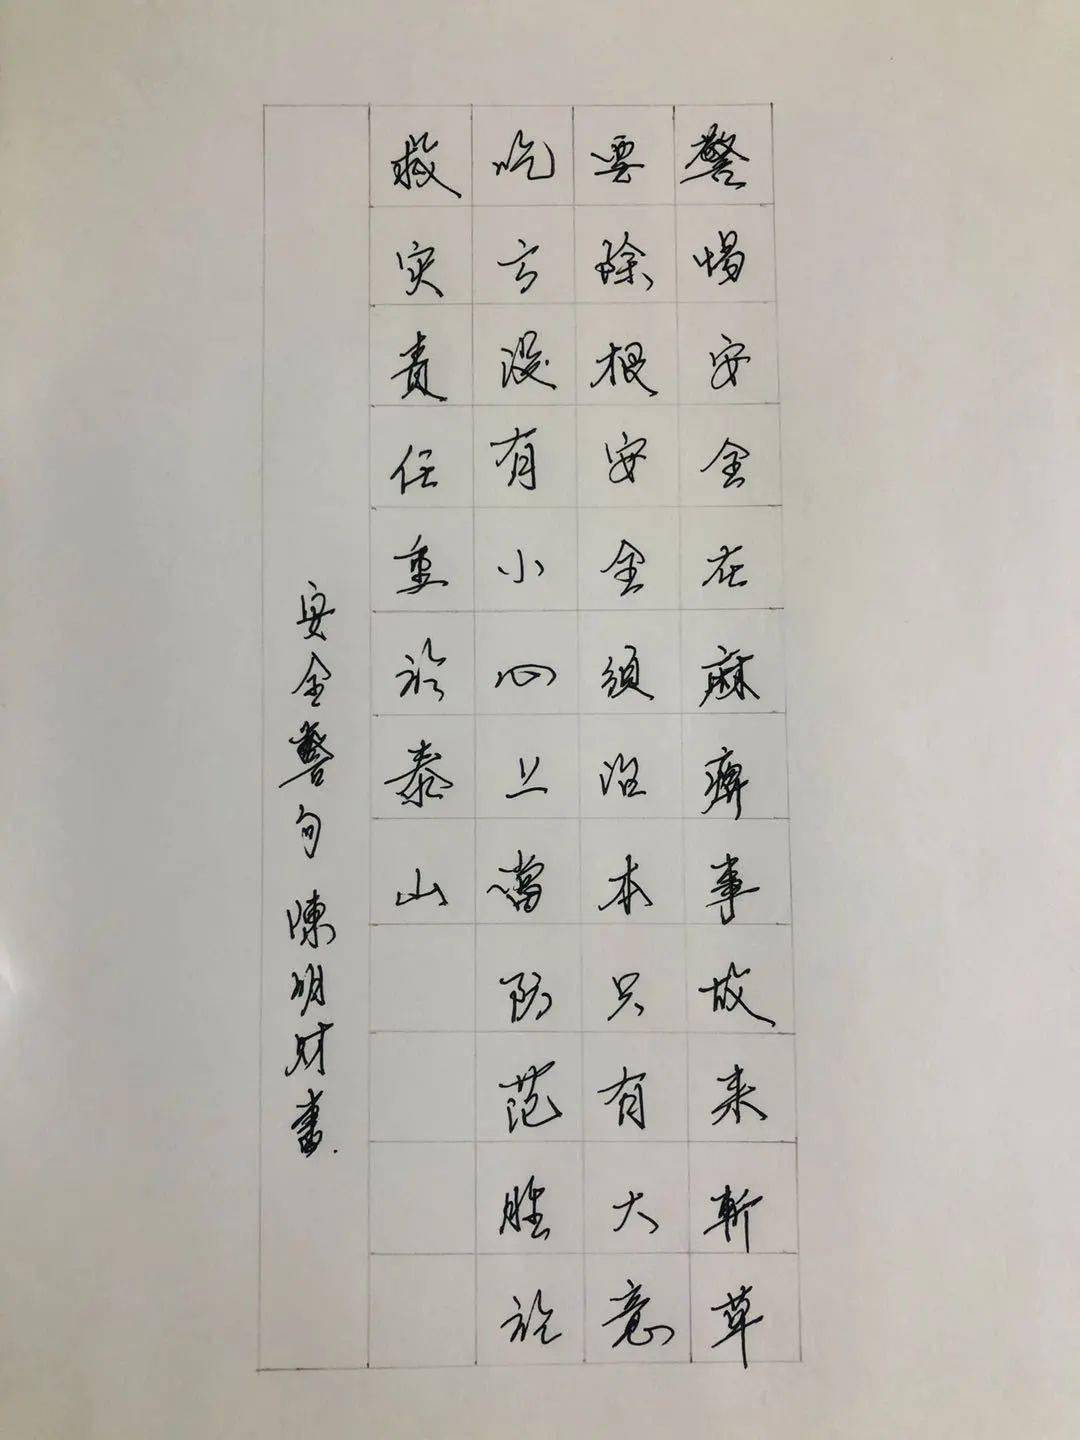 警惕安全在麻痹事故来斩草
要除根安全须治本只有大意
吃亏没有小心上当防范胜於
救灾责任重於泰山
安全警句 陳明财書